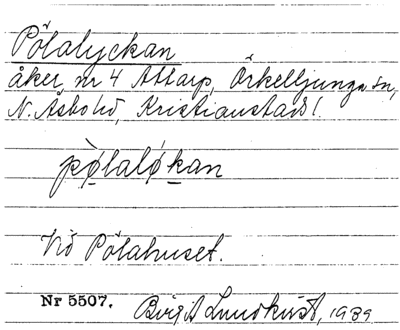 Pölalyckan
åker, nr 4 Attarp, Örkelljunga sn,
N. Åsbo hd, Kristianstads l.
pø̀laló̷kan
Vid Pölahuset.
Nr 5507. Birgit Lundkvist, 1939